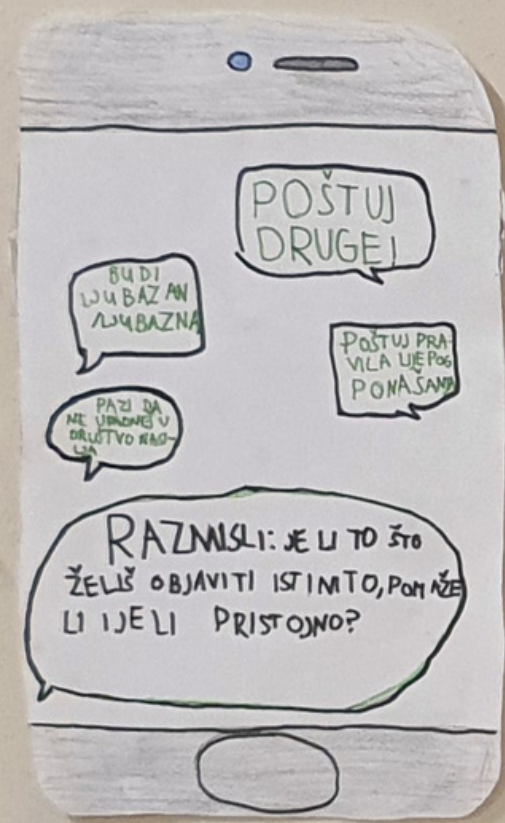 POŠTUJ
DRUGE!
BUDI
LJUBAZAN
/LJUBAZNA
POŠTUJ PRA-
VILA LIJEPOG
PONAŠANJA
PAZI DA
NE UPADNEŠ U
DRUŠTVO NASI-
LJA
RAZMISLI: JE LI TO ŠTO
ŽELIŠ OBJAVITI ISTINITO, POMAŽE
LI I JE LI PRISTOJNO?